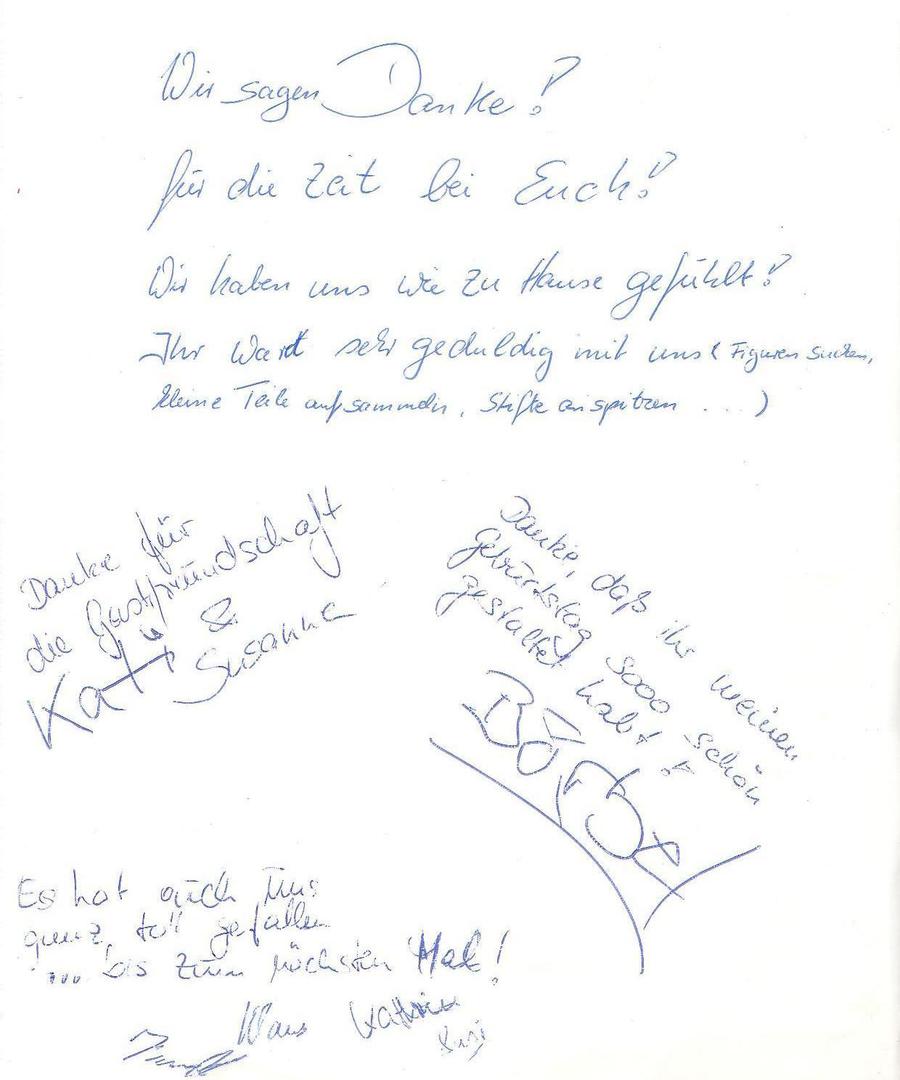 Wir sagen Danke!
für die Zeit bei Euch!
Wir haben uns wie zu Hause gefühlt!
Ihr wart sehr geduldig mit uns (Figuren suchen,
kleine Teile aufsammeln, Stifte anspitzen ...)
Danke für
die Gastfreundschaft
Kati &
Susanne
Danke, daß ihr meinen
Geburtstag sooo schön
gestaltet habt!
Es hat auch uns
ganz toll gefallen
... bis zum nächsten Mal!
Klaus Kathrin
Susi